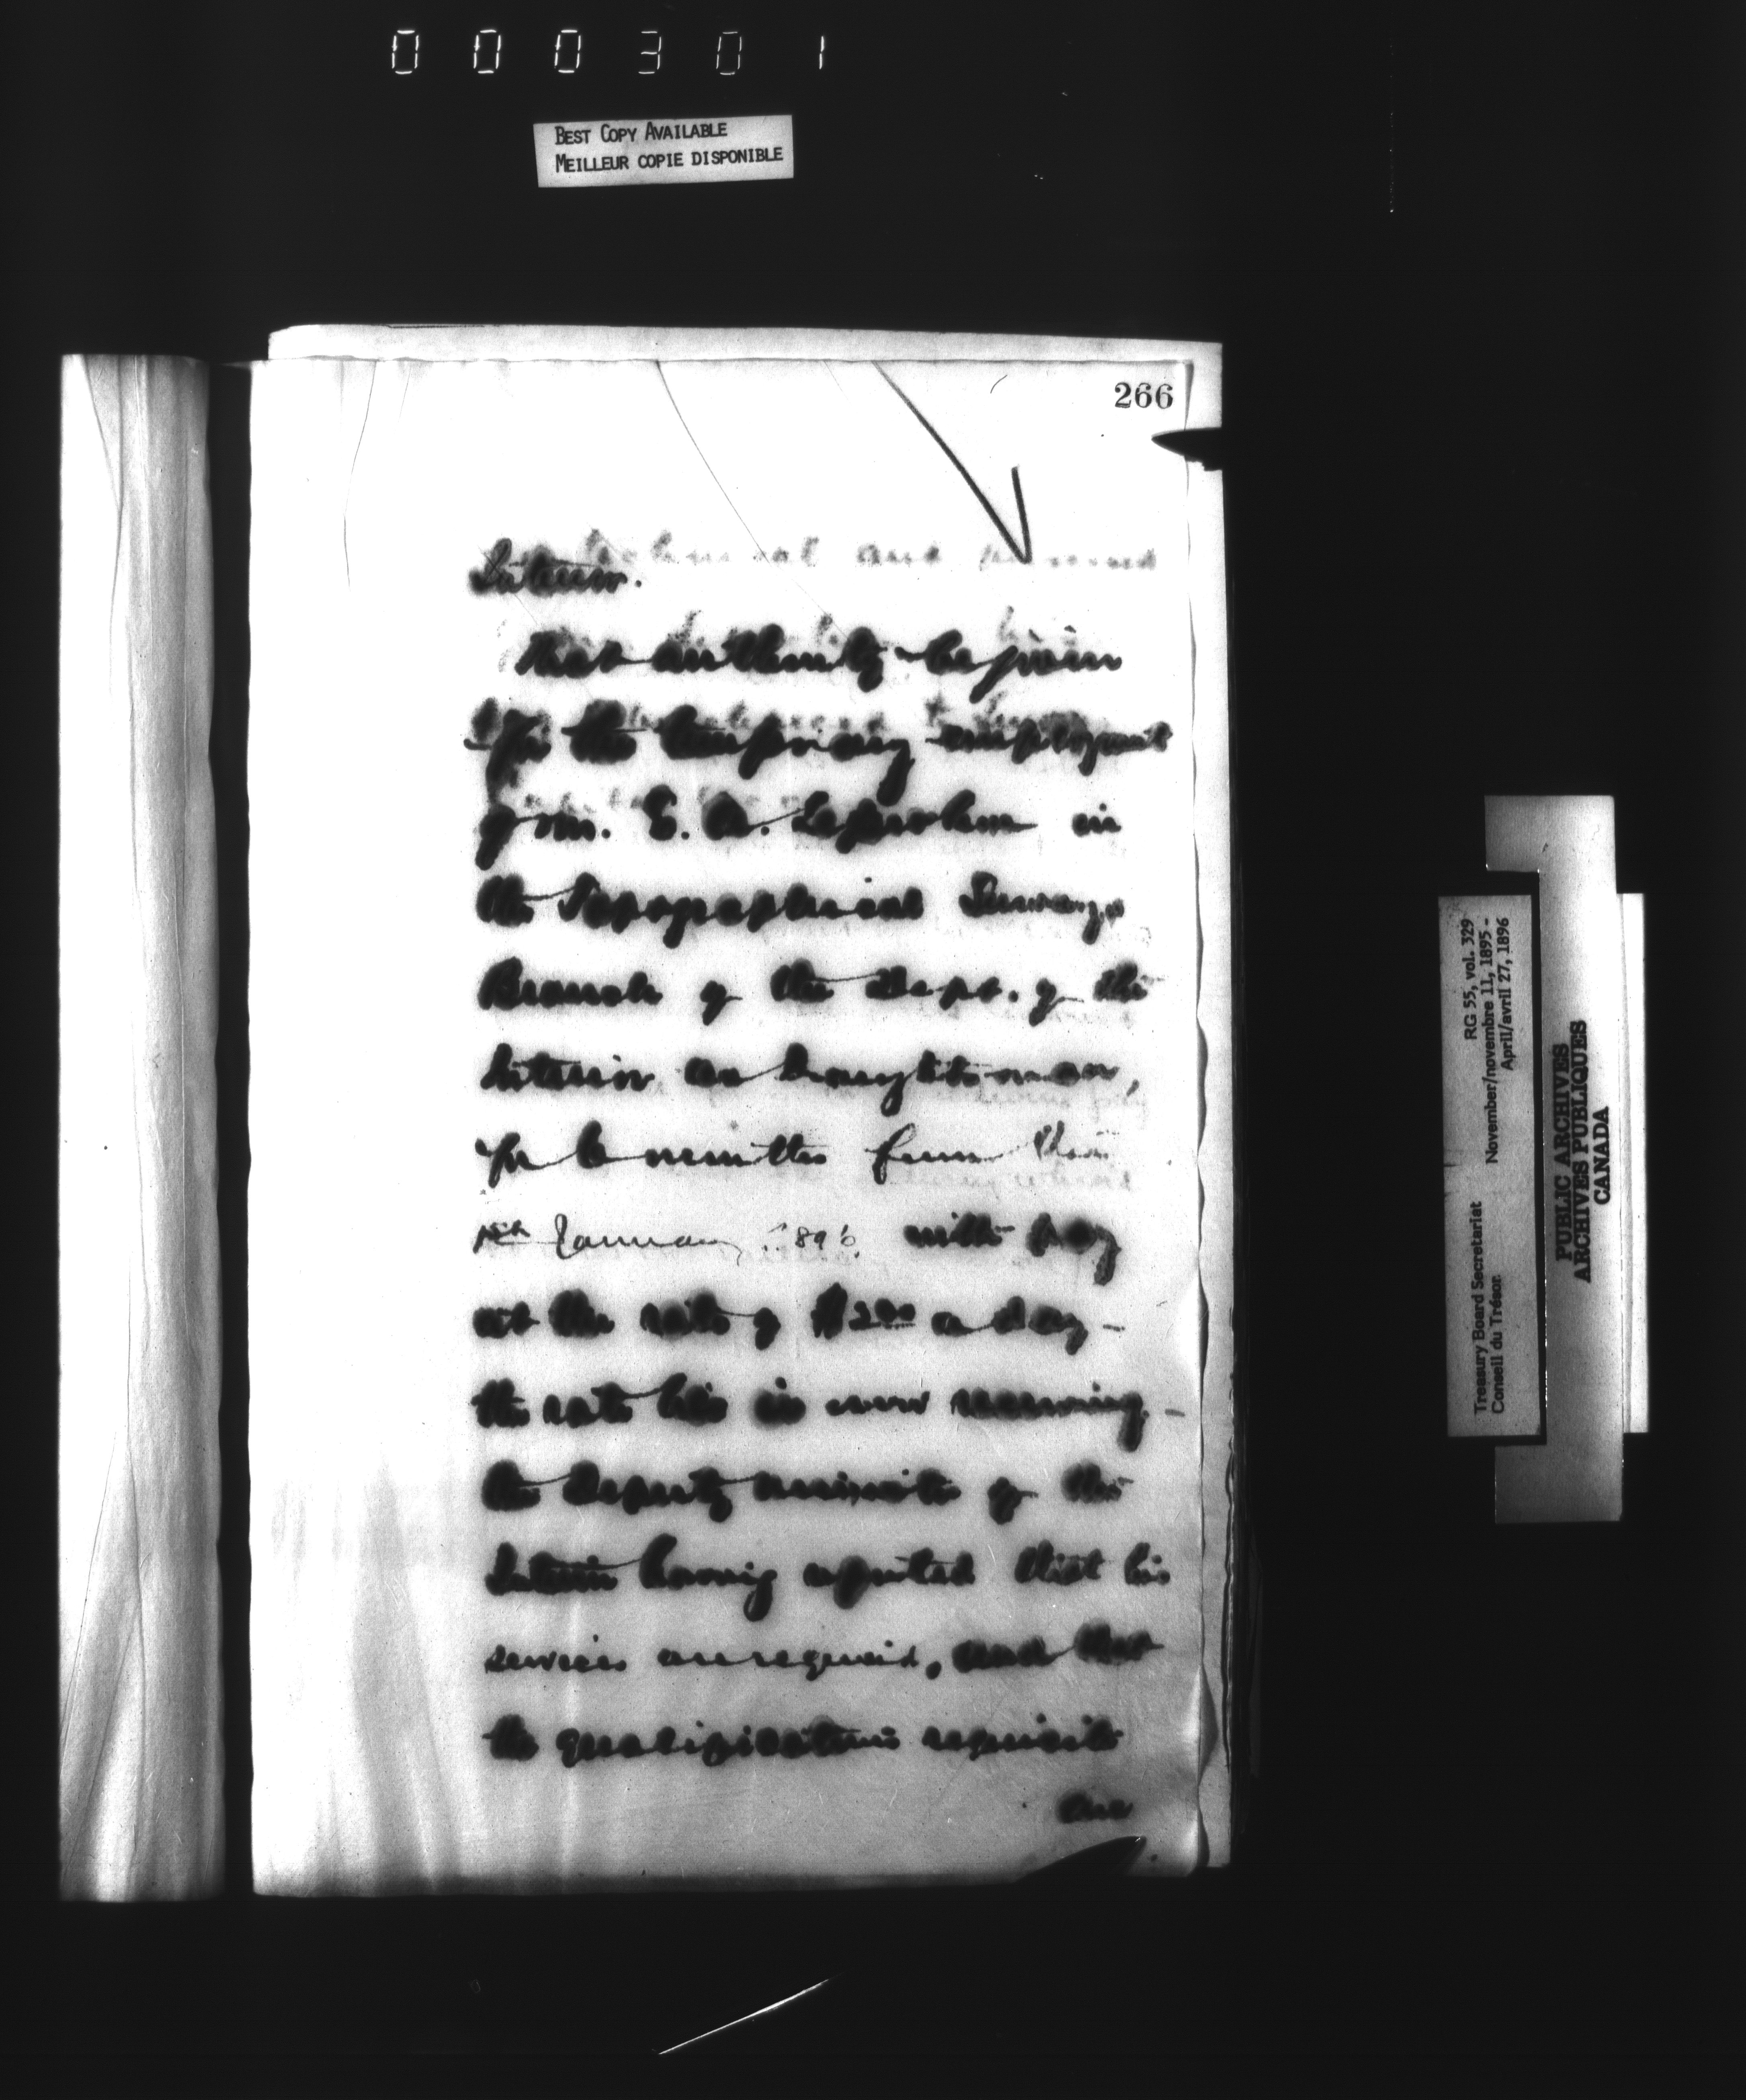 000301
BEST COPY AVAILABLE
MEILLEUR COPIE DISPONIBLE
266
Interior.
That authority be given
for the temporary employment
of Mr. E. A. in
the Topographical Surveys
Branch of the Dept. of the
Interior as Draughtsman,
for 6 months from the
1st January 1896 with pay
at the rate of $2.00 a day –
the rate he is now receiving –
the Deputy Minister of the
Interior having reported that his
services are required, and that
the qualifications requisite
are
Treasury Board Secretariat RG 55, vol. 329
Conseil du Trésor November/novembre 11, 1895 -
April/avril 27, 1896
PUBLIC ARCHIVES
ARCHIVES PUBLIQUES
CANADA